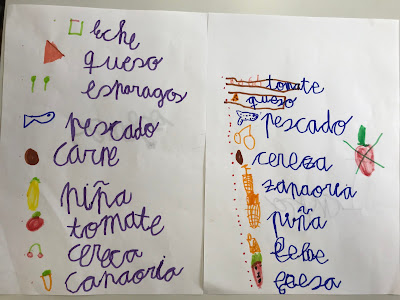 leche
queso
esparagos
pescado
carne
piña
tomate
cereça
canaoria
tomate
queso
pescado
cereza
zanaoria
piña